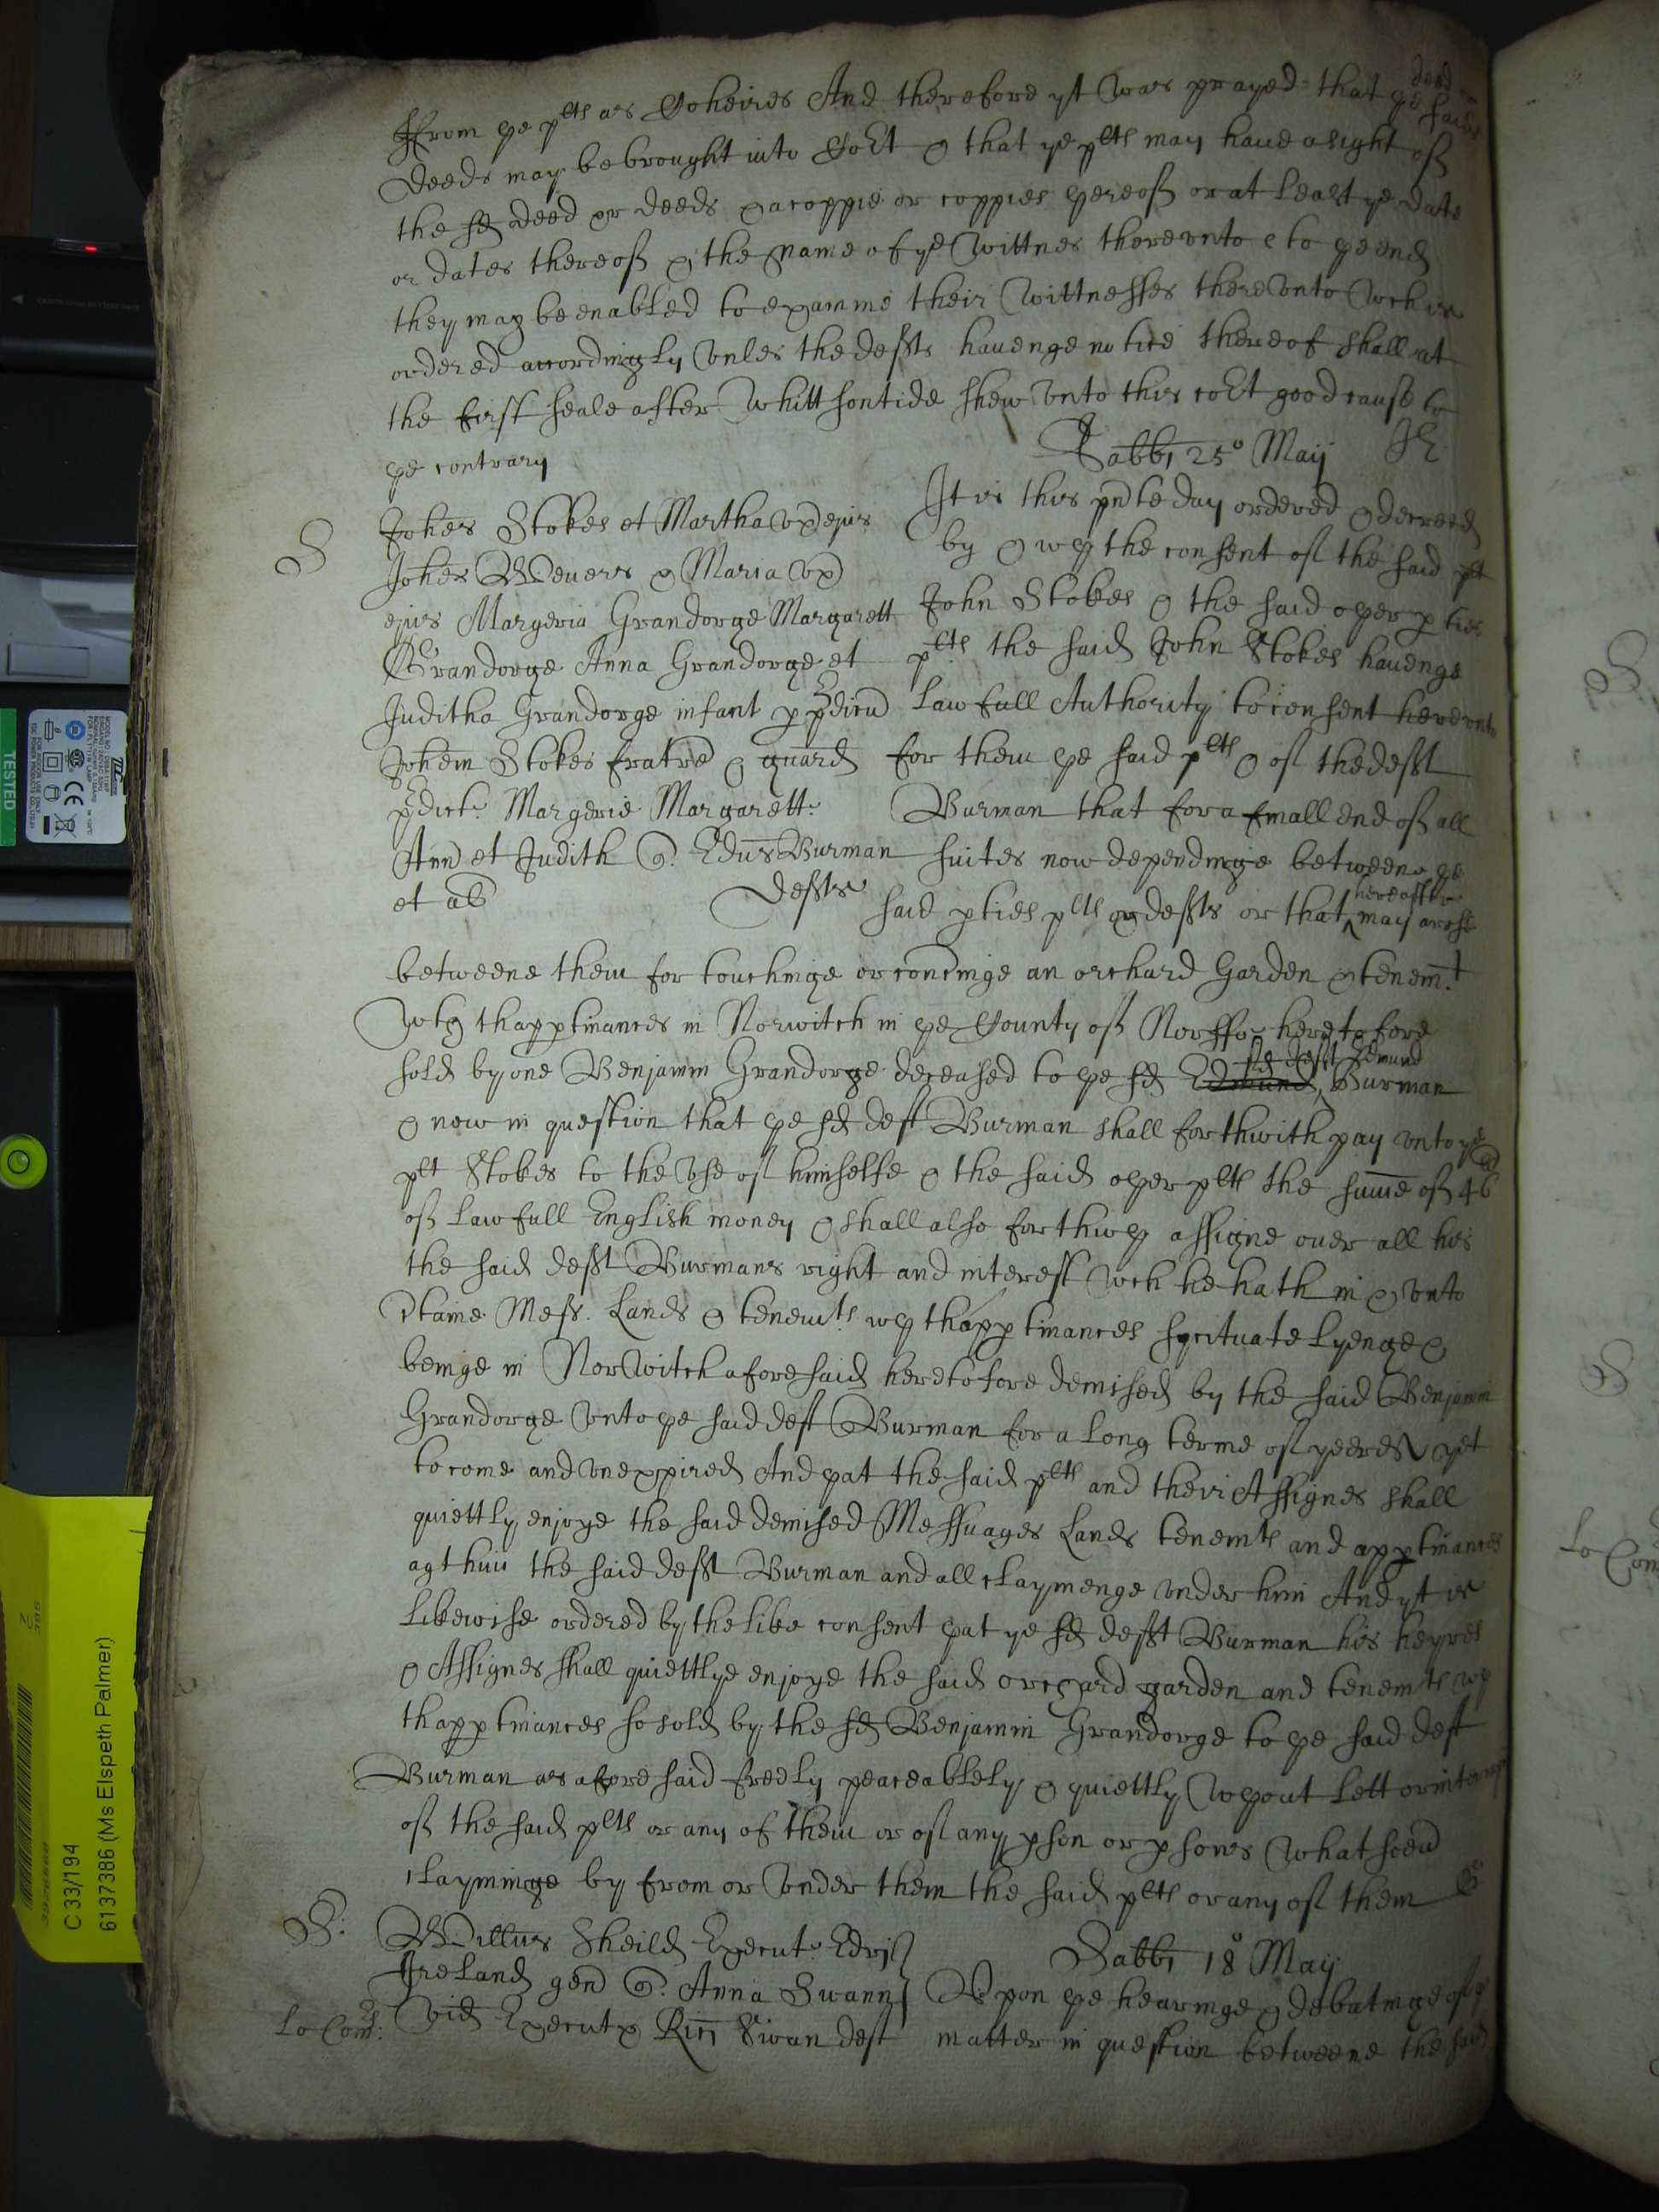 ffrom ye plts as Coheires And therefore yt was prayed that ye said deed or
deeds may be brought into Cort & that ye plts may haue a sight of
the sd deed or deeds & a coppie or coppies yereof or at Least ye date
or dates thereof & the name of ye Wittnes therevnto to ye end
they may be enabled to examine their Wittnesses therevnto wch is
ordered accordingly vnles the defts hauenge notice thereof shall at
the first seale after Whittsontide shew vnto this cort good cause to
ye contrary
Sabbi 25° Maij
S
Johes Stokes et Martha vx ejus
Johes Weuers & Maria vx
ejus Margeria Grandorge Margarett
Grandorge Anna Grandorge et
Juditha Grandorge infant p pdicu
Johem Stokes fratre & guard
pdict. Margerie Margarett.
Ann et Judith Q. Edus Burman
et al Defts
It is this pnte day ordered & decreed
by & wy the consent of the said plt
John Stokes & the said oyer pties
plts the said John Stokes hauenge
Lawfull Authority to consent herevnto
for them ye said plts & of the deft
Burman that for a finall end of all
suites now dependinge betweene ye
said pties plts & defts or that hereafter may arise
betweene them for touchinge or concinge an orchard Garden & tenemt
wth thapptinances in Norwitch in ye County of Norff heretofore
sold by one Benjamin Grandorge deceased to ye sd Edmund sd deft Edmund Burman
& now in question that ye sd deft Burman shall forthwith pay vnto ye
plt Stokes to the vse of himselfe & the said oyer plts the summe of 46
of Lawfull English money & shall also forthwy assigne ouer all his
the said deft Burmans right and interest wch he hath in & vnto
Mess. Lands & tenemts wy thapptinances scituate Lyenge &
beinge in Norwitch aforesaid heretofore demised by the said Benjamin
Grandorge vnto ye said deft Burman for a Long terme of yeeres yet
to come and vnexpired And yat the said plts and their Assignes shall
quiettly enjoye the said demised Messuages Lands tenemts and apptinances
agt him the said deft Burman and all claymenge vnder him And yt is
Likewise ordered by the like consent yat ye sd deft Burman his heyres
& Assignes shall quiettlye enjoye the said orchard garden and tenemts wy
thapptinances so sold by the sd Benjamin Grandorge to ye said deft
Burman as aforesaid freely peaceablely & quiettly wyout Lett or
of the said plts or any of them or of any pson or psons whatsoeu
clayminge by from or vnder them the said plts or any of them
S:
Lo Com:
Willus Sheild Execut. Edri
Ireland gen Q. Anna Swann
vid Execut Rici Swan deft
Sabbi 18° Maij
Vpon ye hearinge & debatinge of ye
matter in question betweene the said
Lo Com
TESTED
C 33/194
6137386 (Ms Elspeth Palmer)